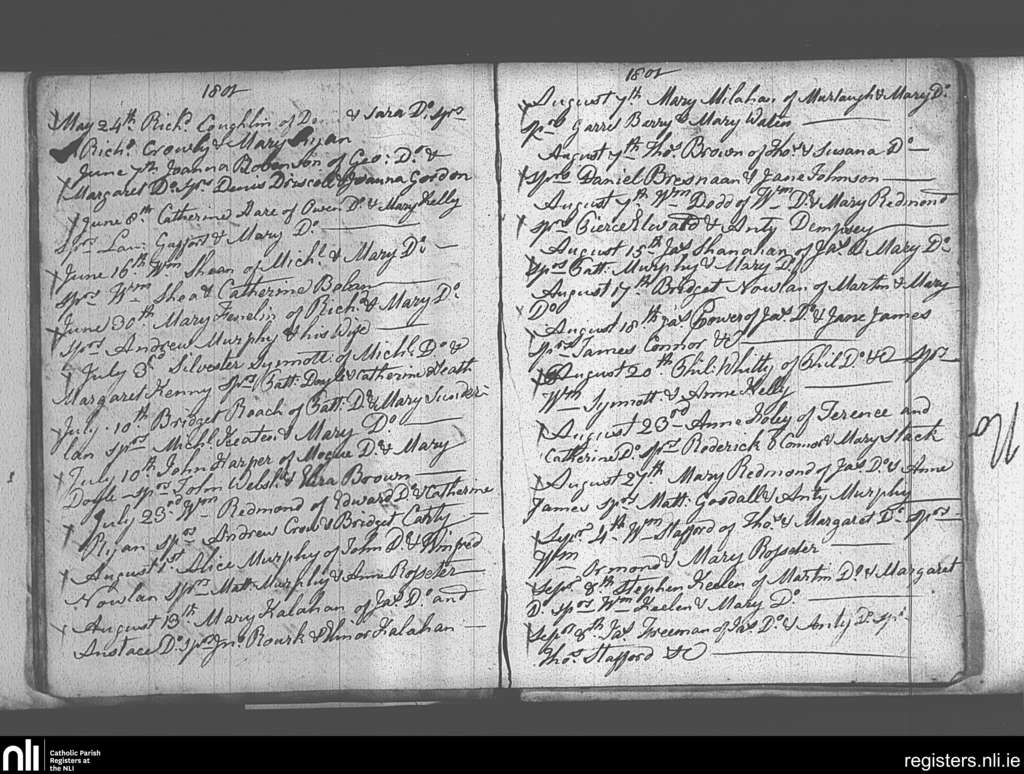 1801
May 24th Richd. Coughlin of Do. & Sara Do. Sprs
Richd. Crowly & Mary Ryan
June 7th Joanna Robinson of Geo: Do. &
Margaret Do. Sprs Denis Driscoll & Joanna Gordon
June 8th Catherine Hare of Owen Do. & Mary Kelly
Sprs Lau: Gafford & Mary Do.
June 16th Wm Shean of Michl. & Mary Do.
Sprs Wm Shea & Catherine Bolan
June 30th Mary of Richd. & Mary Do.
Sprs Andrew Murphy & his Wife
July 3d Silvester Synnott of Michl. Do. &
Margaret Kenny Sprs Patt. Doyle & Catherine Heath
July 10th Bridget Roach of Patt: Do. & Mary
lan Sprs Michl. Keaten & Mary Do.
July 10th John Harper of Mogue Do. & Mary
Doyle Sprs John Welsh & Brown
July 23rd Wm Redmond of Edward Do. & Catherine
Ryan Sprs Andrew Crow & Bridget Carty
August 1st Alice Murphy of John Do. & Winfred
Nowlan Sprs Matt. Murphy & Anne Rosseter
August 13th Mary Kalahan of Jas. Do. and
Anstace Do. Sprs Jno. Roark & Elinor Kalahan
1801
August 7th Mary Milahan of Murtaugh & Mary Do.
Sprs Garret Berry & Mary Walen
August 7th Thos. Brown of Thos. & Susana Do.
Sprs Daniel Bresnaan & Jane Johnson
August 7th Wm Dodd of Wm Do. & Mary Redmond
Sprs Pierce Elward & Anty Dempsey
August 15th Jas Shanahan of Jas. & Mary Do.
Sprs Patt. Murphy & Mary Do.
August 17th Bridget Nowlan of Martin & Mary
Do.
August 18th Jas. Power of Jas. Do. & Jane James
Sprs James Connor &c
August 20th Phil: Whitty of Phil Do. &c Sprs
Wm Synnott & Anne Kelly
August 23rd Anne Foley of Terence and
Catherine Do. Sprs Roderick O Connor & Mary Stack
August 27th Mary Redmond of Jas Do. & Anne
James Sprs Matt: Goodall & Anty Murphy
Sepr. 4th Wm Stafford of Thos. & Margaret Do. Sprs
Wm Ormond & Mary Rosseter
Sepr. 8th Stephen Keelen of Martin Do. & Margaret
Do. Sprs Wm Keelen & Mary Do.
Sepr. 8th Jas Freeman of Jas Do. & Anty Do. Sprs
Thos. Stafford &c
nli
Catholic Parish
Registers at
the NLI
registers.nli.ie